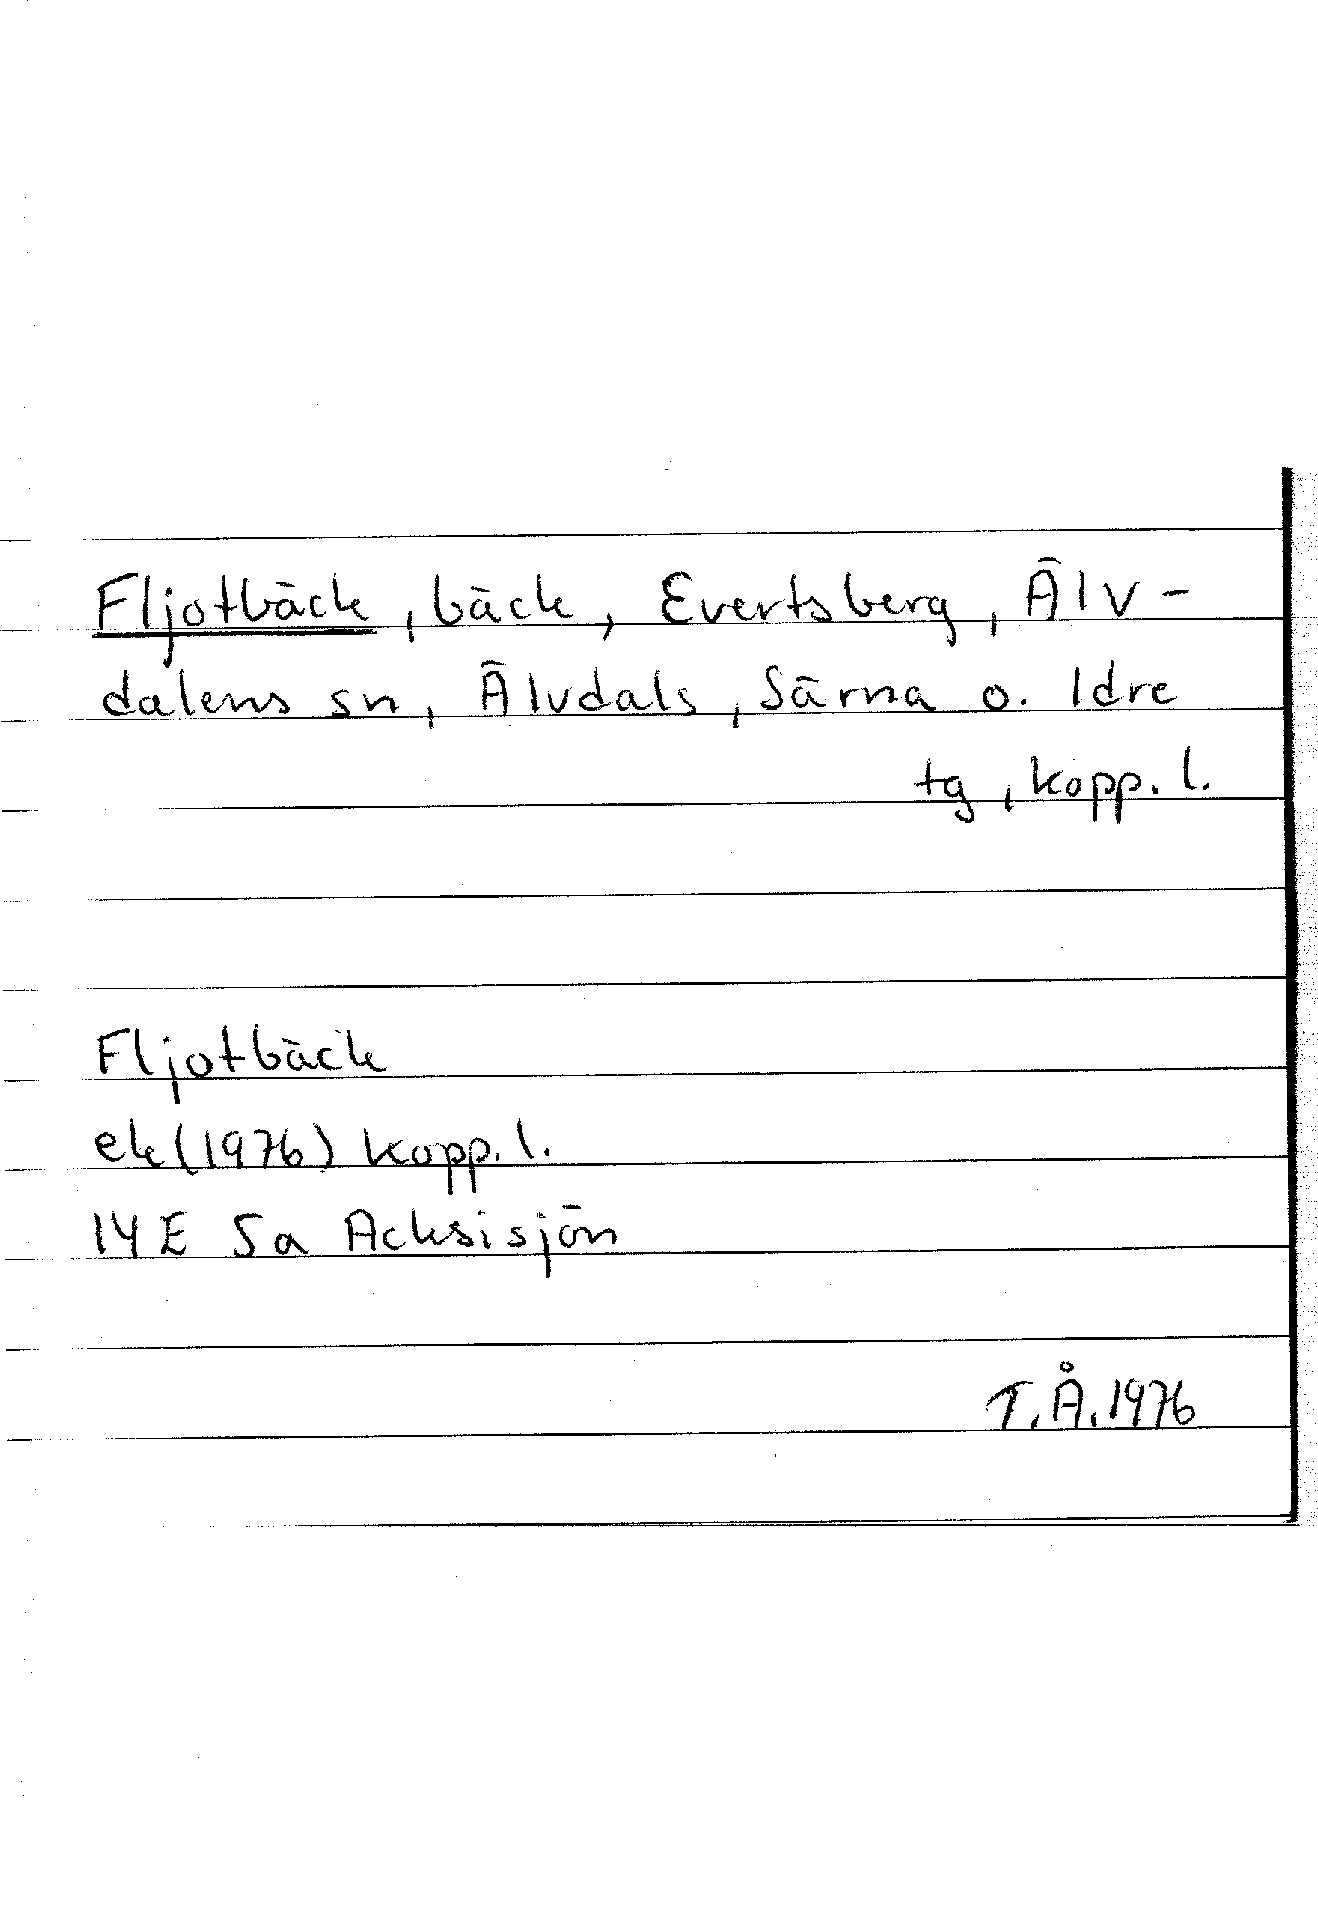 Fljotbäck, bäck, Evertsberg, Älv-
dalens sn, Älvdals, Särna o. Idre
tg, Kopp. l.
Fljotbäck
ek (1976) Kopp. l.
14E 5a Acksisjön
T.Å. 1976